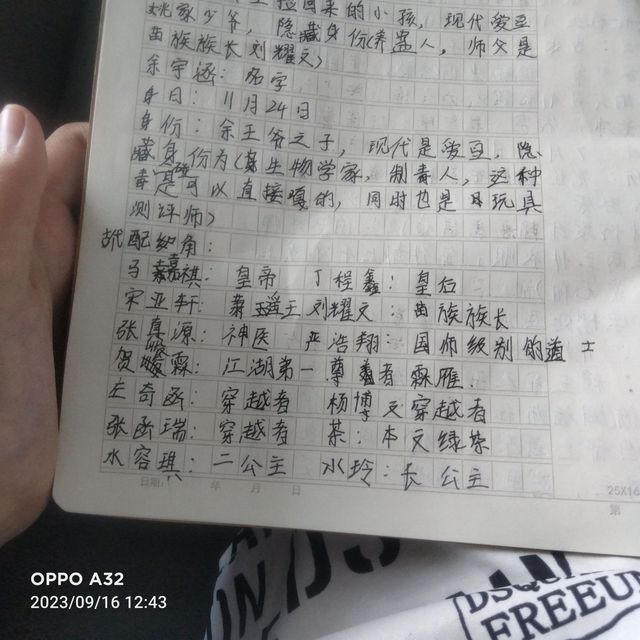 回来的小孩，现代爱豆
姚家少爷，隐藏身份（养蛊人，师父是
苗族族长刘耀文）
余宇涵：名字
身日：11月24日
身份：余王爷之子，现代是爱豆，隐
藏身份为（生物学家，制毒人，这种
毒是可以直接嘎的，同时也是玩具
测评师）
配角：
马嘉祺：皇帝 丁程鑫：皇后
宋亚轩：瑶王 刘耀文：苗族族长
张真源：神医 严浩翔：国师级别的道士
贺峻霖：江湖第一尊者霖雁.
左奇函：穿越者 杨博文穿越者
张函瑞：穿越者 某：本文绿茶
水容琪：二公主 水玲：长公主
日期： 年 月 日
25X16
第
OPPO A32
2023/09/16 12:43
DSQUA
FREEU